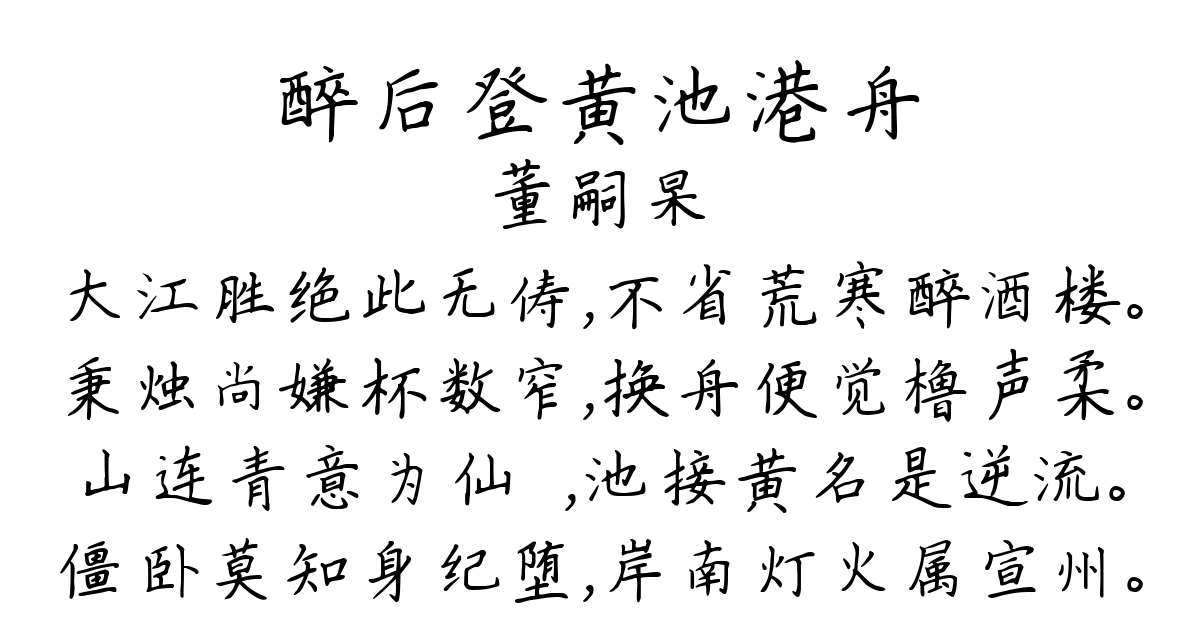 醉后登黄池港舟
董嗣杲
大江胜绝此无俦,不省荒寒醉酒楼。
秉烛尚嫌杯数窄,换舟便觉橹声柔。
山连青意为仙 ,池接黄名是逆流。
僵卧莫知身纪堕,岸南灯火属宣州。